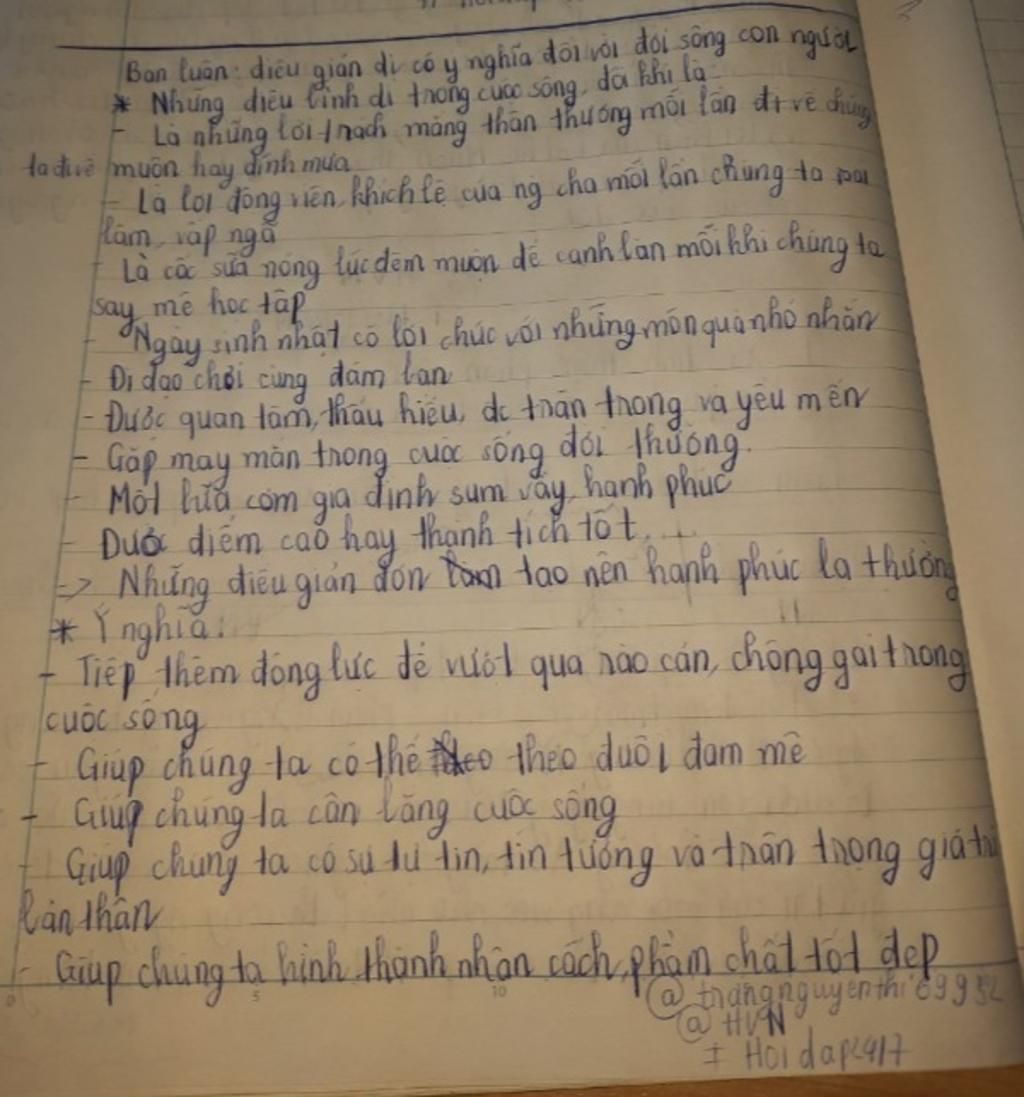 Bàn luận: điều giản dị có ý nghĩa đối với đời sống con người
* Những điều bình dị trong cuộc sống, đôi khi là
- Là những lời trách mắng thân thương mỗi lần đi về chúng
ta đi về muộn hay dính mưa
- Là lời động viên, khích lệ của ng cha mỗi lần chúng ta sai
lầm, vấp ngã
- Là cốc sữa nóng lúc đêm muộn để cạnh bàn mỗi khi chúng ta
say mê học tập
- Ngày sinh nhật có lời chúc với những món quà nhỏ nhắn
- Đi dạo chơi cùng đám bạn
- Được quan tâm, thấu hiểu, dc trân trọng và yêu mến
- Gặp may mắn trong cuộc sống đời thường.
- Một bữa cơm gia đình sum vầy, hạnh phúc
- Được điểm cao hay thành tích tốt...
=> Những điều giản đơn tạo nên hạnh phúc là thường
* Ý nghĩa:
- Tiếp thêm động lực để vượt qua rào cản, chông gai trong
cuộc sống
- Giúp chúng ta có thể theo đuổi đam mê
- Giúp chúng ta cân bằng cuộc sống
- Giúp chúng ta có sự tự tin, tin tưởng và trân trọng giá trị
bản thân
- Giúp chúng ta hình thành nhân cách, phẩm chất tốt đẹp
@ trangnguyenthi69952
@ HVN
# Hoidap247